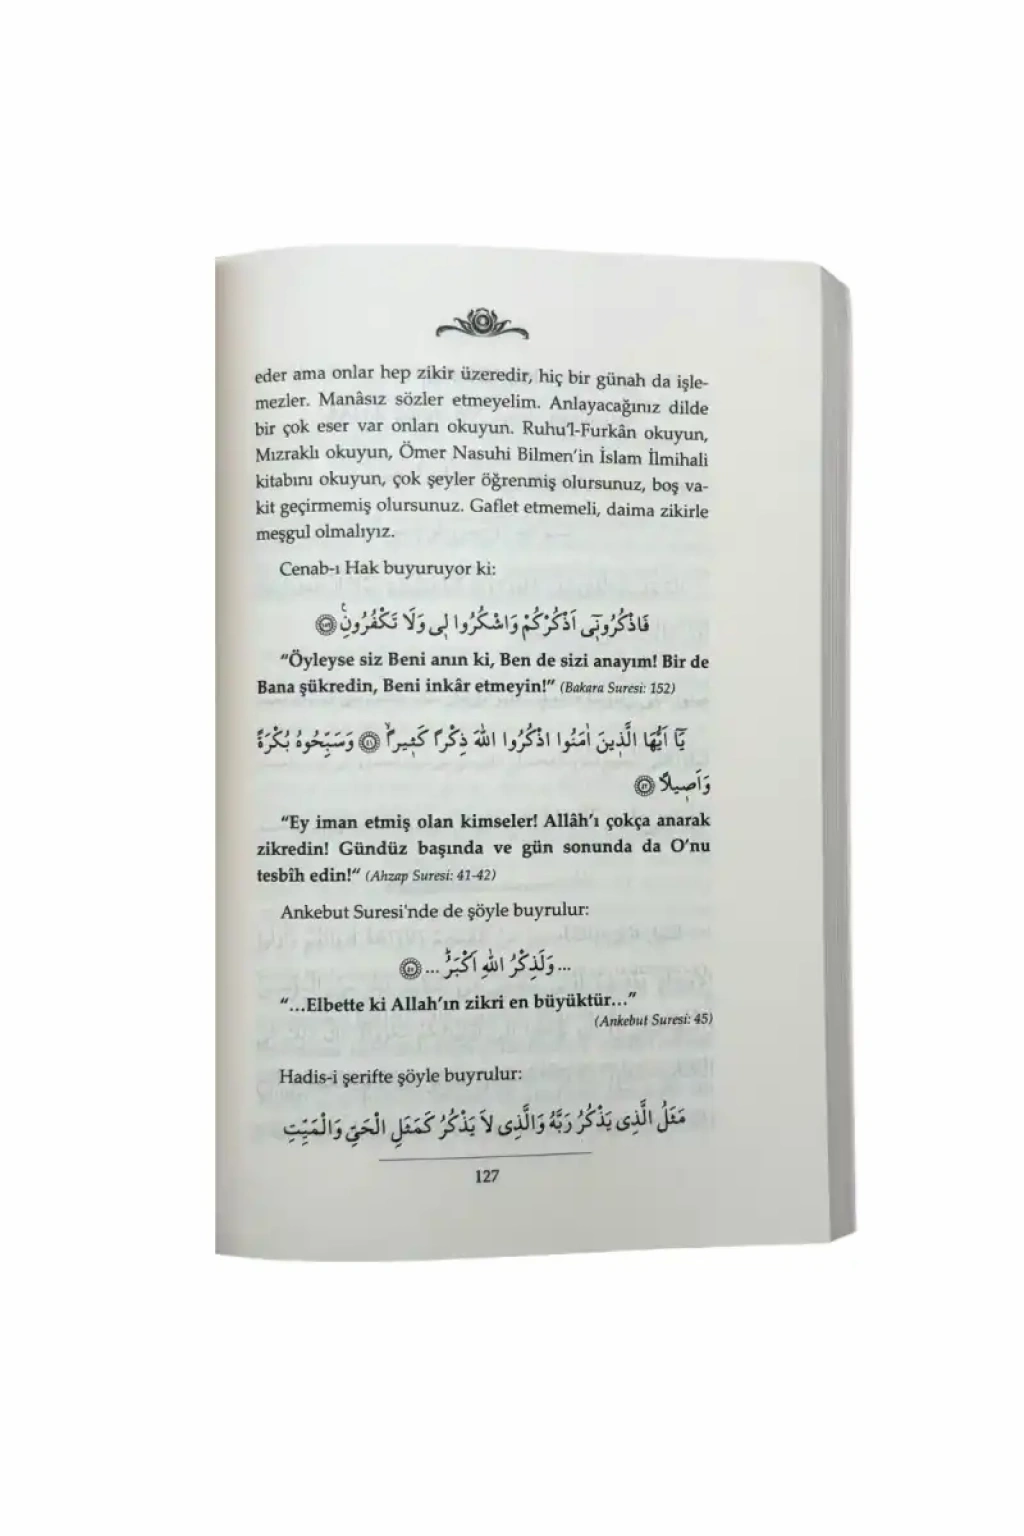 eder ama onlar hep zikir üzeredir, hiç bir günah da işle-
mezler. Manâsız sözler etmeyelim. Anlayacağınız dilde
bir çok eser var onları okuyun. Ruhu'l-Furkân okuyun,
Mızraklı okuyun, Ömer Nasuhi Bilmen'in İslam İlmihali
kitabını okuyun, çok şeyler öğrenmiş olursunuz, boş va-
kit geçirmemiş olursunuz. Gaflet etmemeli, daima zikirle
meşgul olmalıyız.
Cenab-ı Hak buyuruyor ki:
فَاذْكُرُونٖٓي اَذْكُرْكُمْ وَاشْكُرُوا لٖي وَلَا تَكْفُرُونِࣖ ﴿١٥٢﴾
"Öyleyse siz Beni anın ki, Ben de sizi anayım! Bir de
Bana şükredin, Beni inkâr etmeyin!" (Bakara Suresi: 152)
يَٓا اَيُّهَا الَّذٖينَ اٰمَنُوا اذْكُرُوا اللّٰهَ ذِكْرًا كَثٖيرًاۙ ﴿٤١﴾ وَسَبِّحُوهُ بُكْرَةً
وَاَصٖيلًا ﴿٤٢﴾
"Ey iman etmiş olan kimseler! Allâh'ı çokça anarak
zikredin! Gündüz başında ve gün sonunda da O'nu
tesbîh edin!" (Ahzap Suresi: 41-42)
Ankebut Suresi'nde de şöyle buyrulur:
...وَلَذِكْرُ اللّٰهِ اَكْبَرُؕ ... ﴿٤٥﴾
"...Elbette ki Allah'ın zikri en büyüktür..."
(Ankebut Suresi: 45)
Hadis-i şerifte şöyle buyrulur:
مَثَلُ الَّذِى يَذْكُرُ رَبَّهُ وَالَّذِى لاَ يَذْكُرُ كَمَثَلِ الْحَىِّ وَالْمَيِّتِ
127